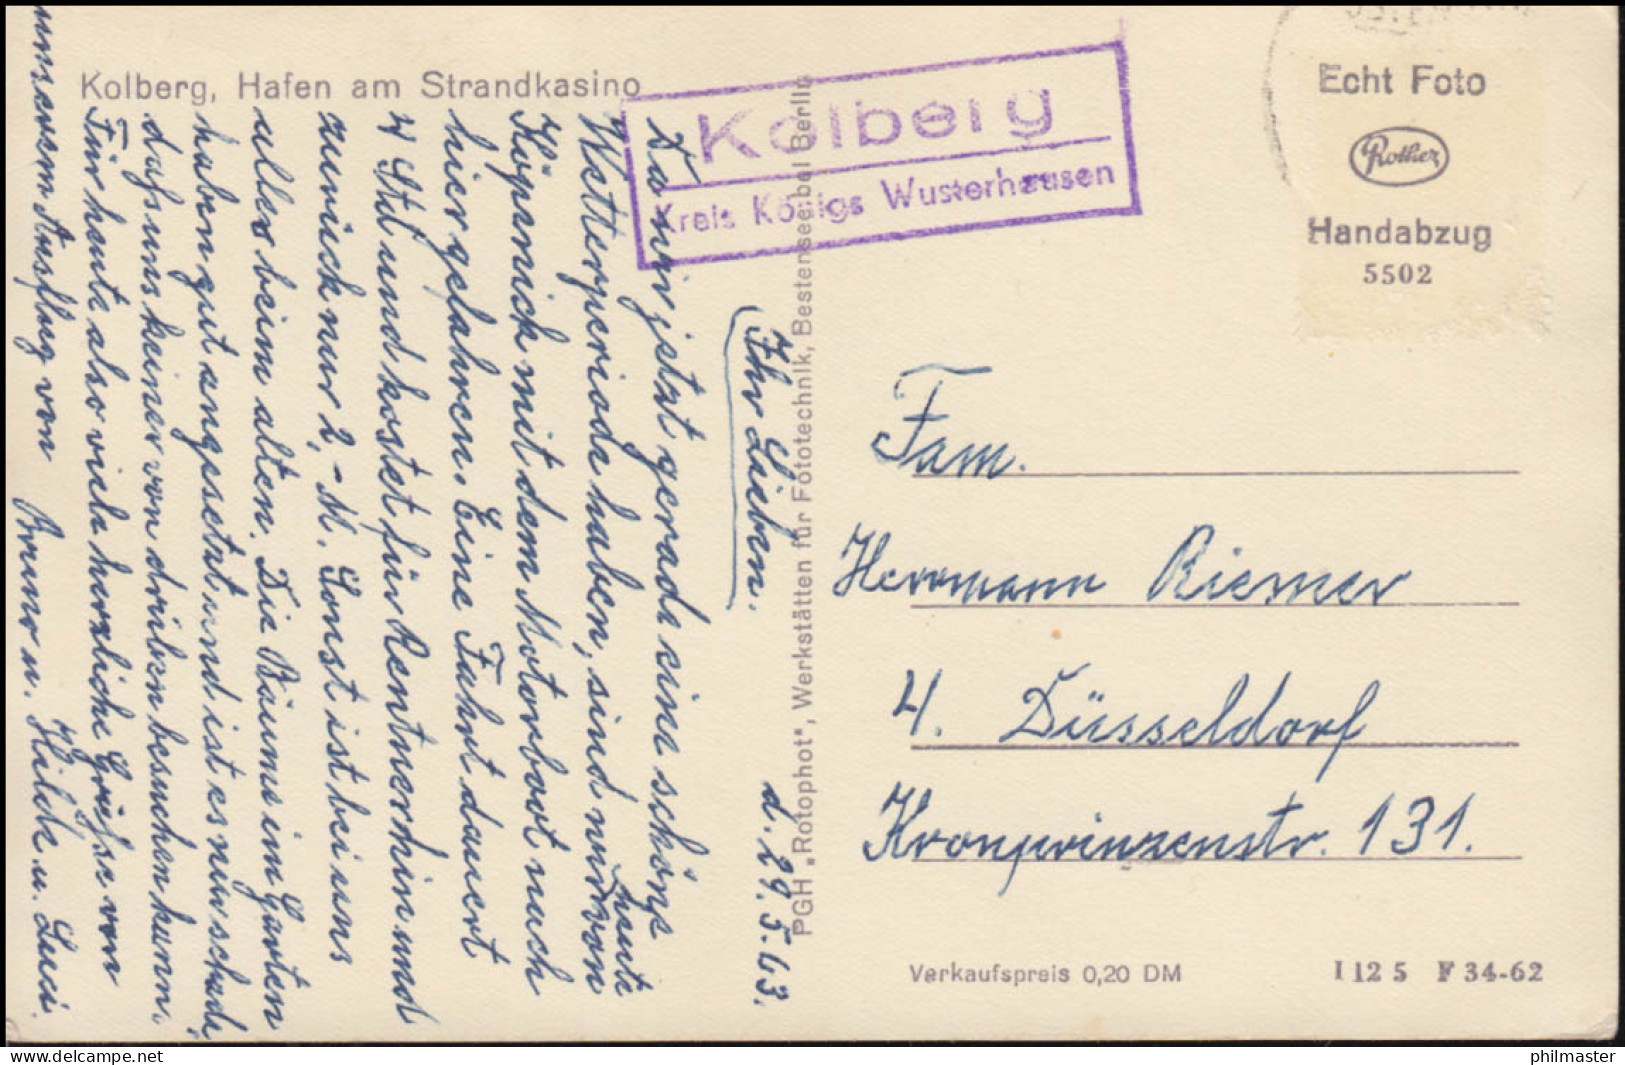 Kolberg, Hafen am Strandkasino
Kolberg
Kreis Königs Wusterhausen
Echt Foto
Rother
Handabzug
5502
d. 29.5.63.
Ihr Lieben.
Da wir jetzt gerade eine schöne
Wetterperiode haben, sind wir von
heute
Köpenick mit dem Motorboot nach
hier gefahren. Eine Fahrt dauert
4 Std und kostet für Rentner hin und
zurück nur 2,- M. Sonst ist bei uns
alles beim alten. Die Bäume im Garten
haben gut angesetzt und ist es nur schade
daß uns keiner von drüben besuchen kann.
Für heute also viele herzliche Grüsse von
unserem Ausflug von Bruno u. Hilde u. Luci.
PGH „Rotophot", Werkstätten für Fototechnik, Bestensee bei Berlin
Fam.
Herrmann Riemer
4. Düsseldorf
Kronprinzenstr. 131.
Verkaufspreis 0,20 DM
I 12 5 F 34-62
philmaster